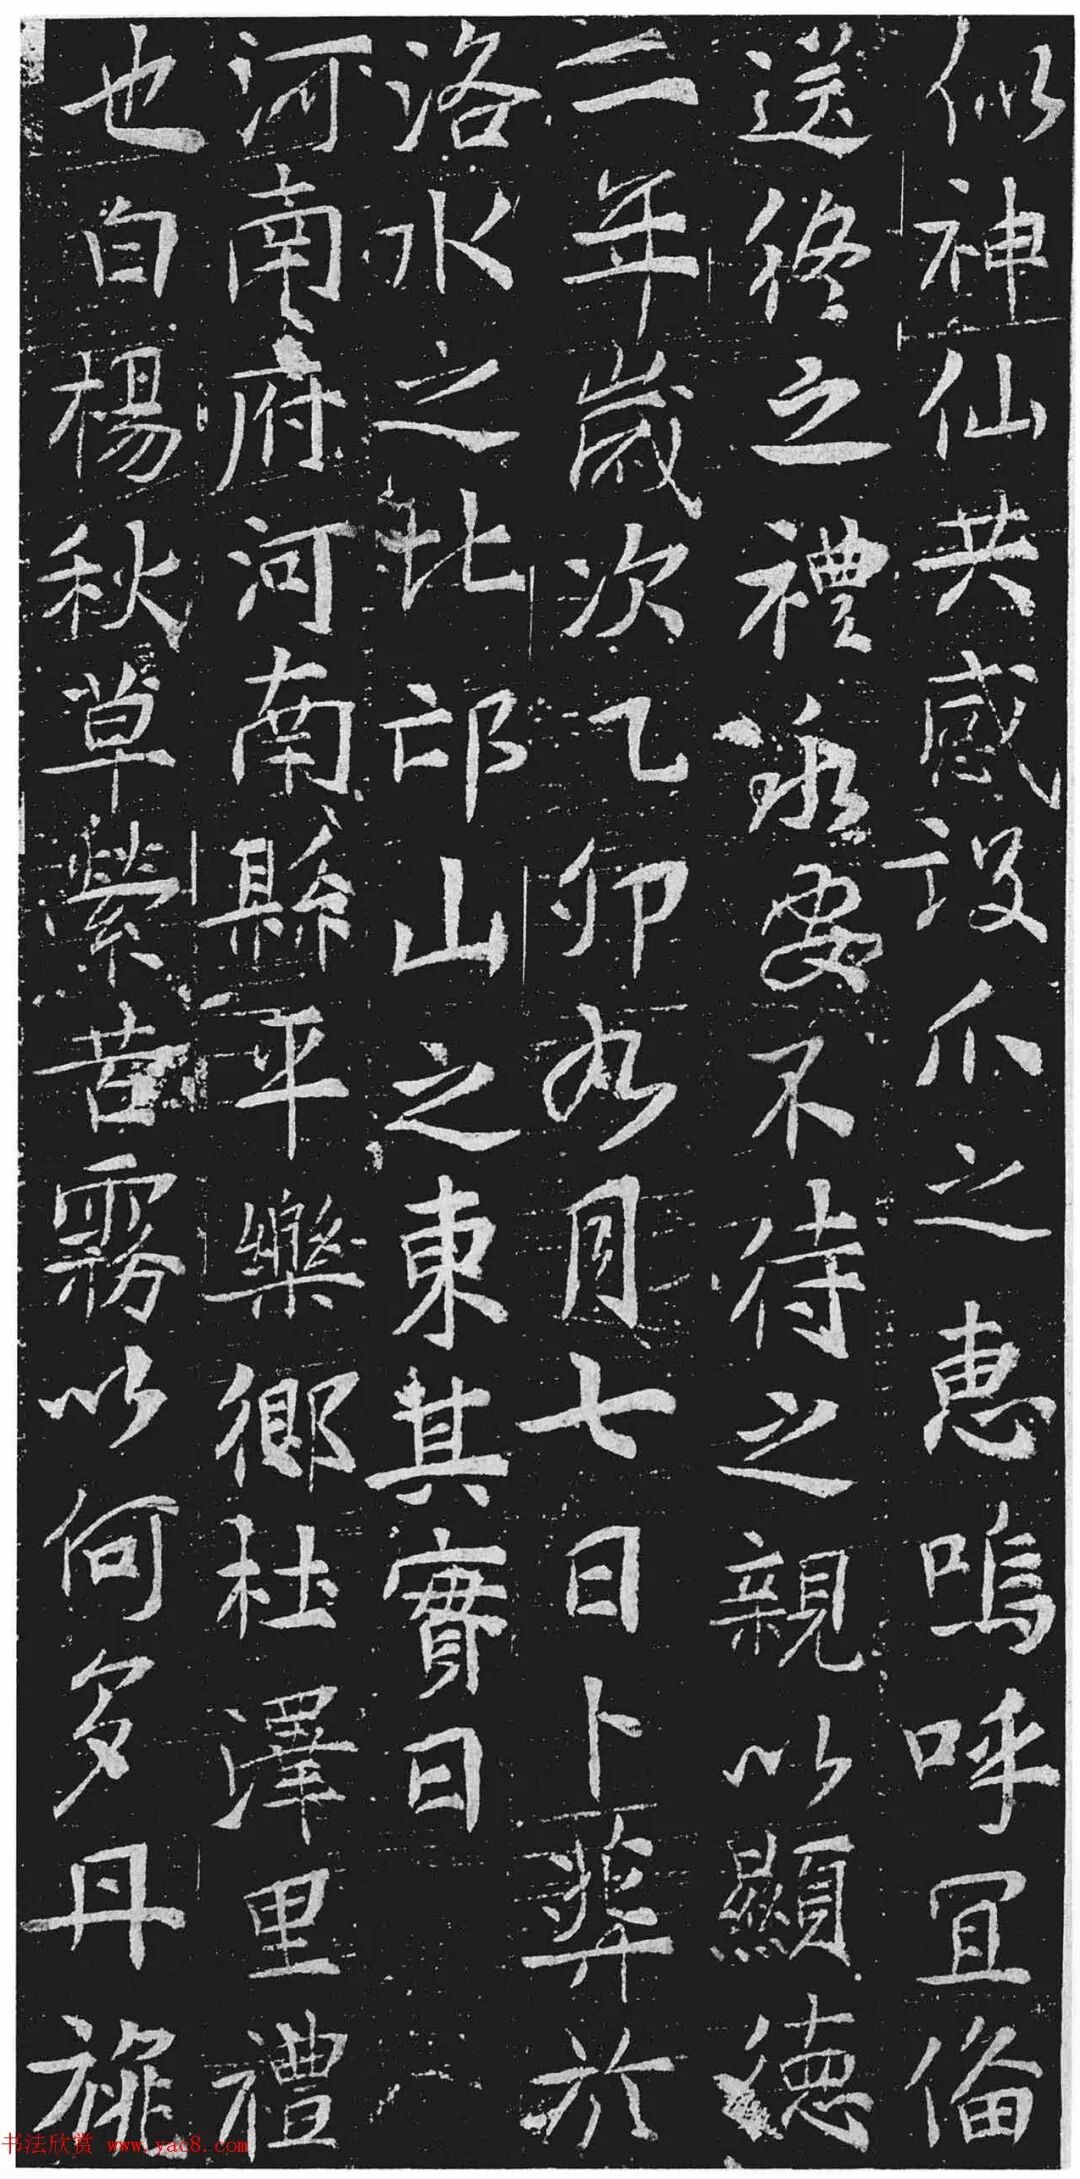 似神仙共感設爪之惠嗚呼冝俻
送終之禮不待之親以顯德
二年歲次乙卯九月七日卜葬於
洛水之北邙山之東其實曰
河南府河南縣平樂鄉杜澤里禮
也白楊秋草縈苦霧以何多丹旐
书法欣赏 www.yac8.com